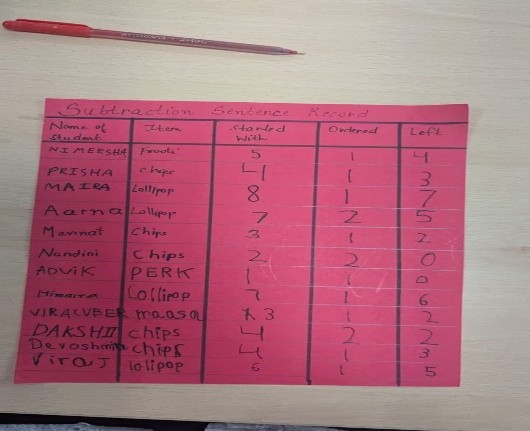 Subtraction Sentence Record
Name of student Item Started With Ordered Left
NIMEESHA Frooti 5 1 4
PRISHA chips 4 1 3
MAIRA Lollipop 8 1 7
Aarna Lollipop 7 2 5
Mannat Chips 3 1 2
Nandini Chips 2 2 0
ADVIK PERK 1 1 0
Lollipop 7 1 6
VIRALVEER maasa 3 1 2
DAKSHIT chips 4 2 2
chips 4 1 3
Viraj lolipop 6 1 5